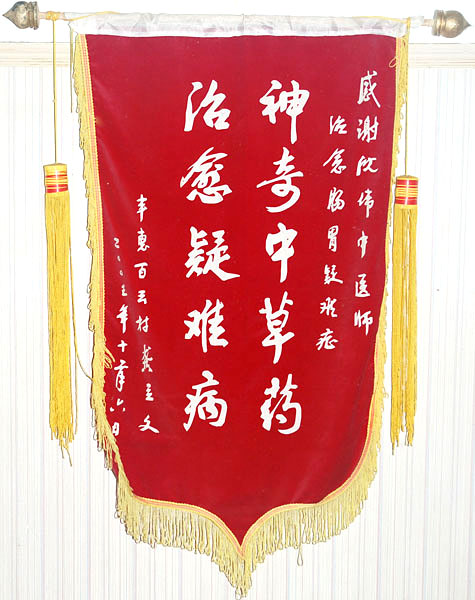 感谢阮伟中医师
治愈肠胃疑难症
神奇中草药
治愈疑难病
丰惠百云村龚立文
二00三年十月六日